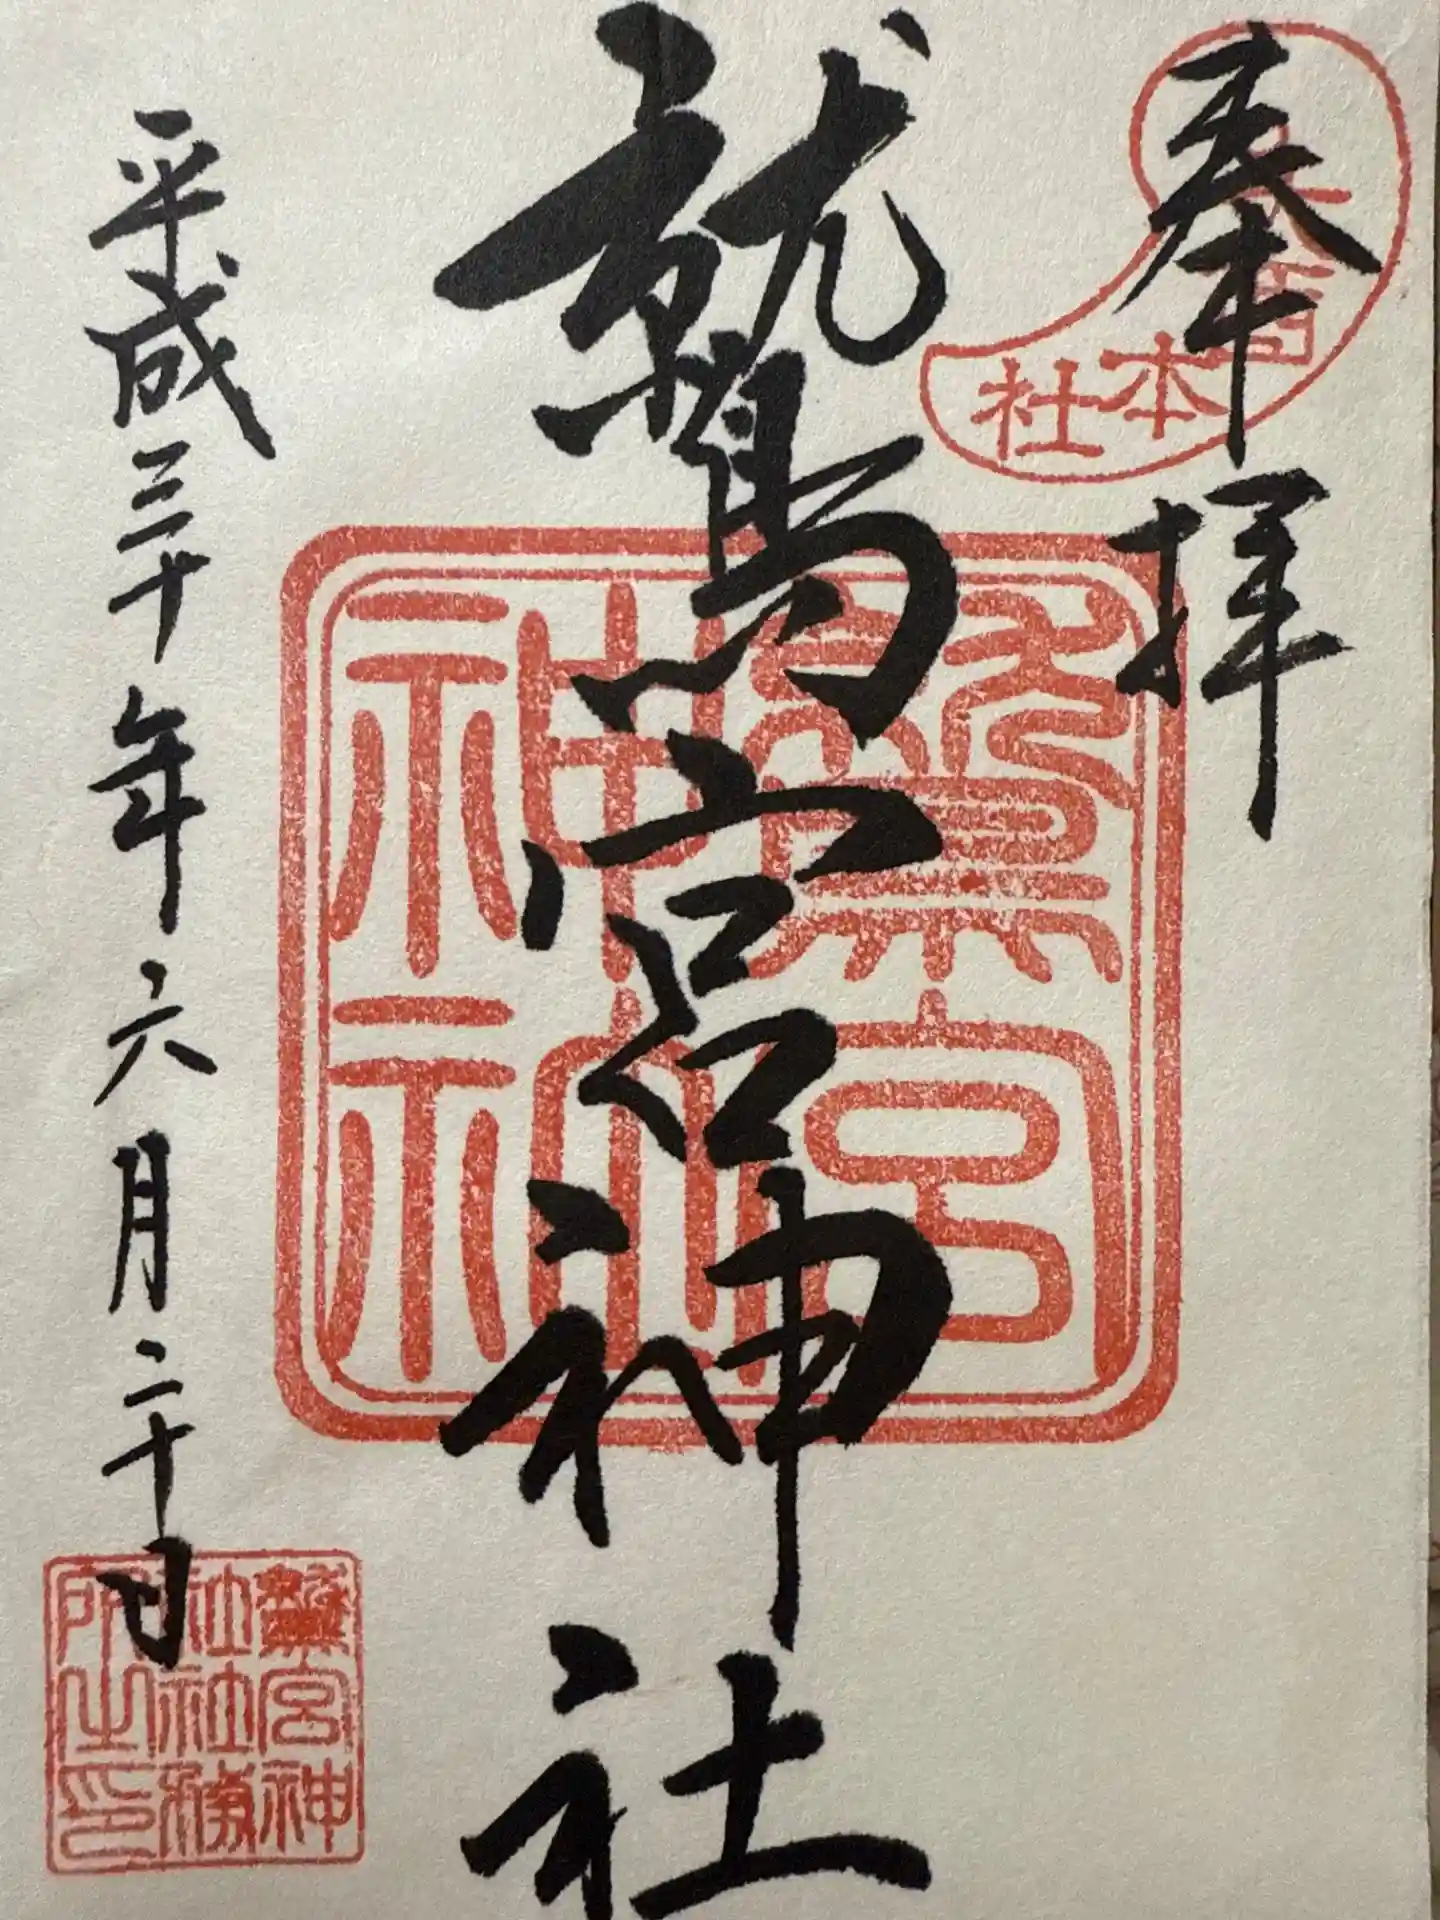 奉拝
本社
鷲宮神社
鷲宮
神社
平成三十年六月二十日
鷲宮神
社社務
所之印